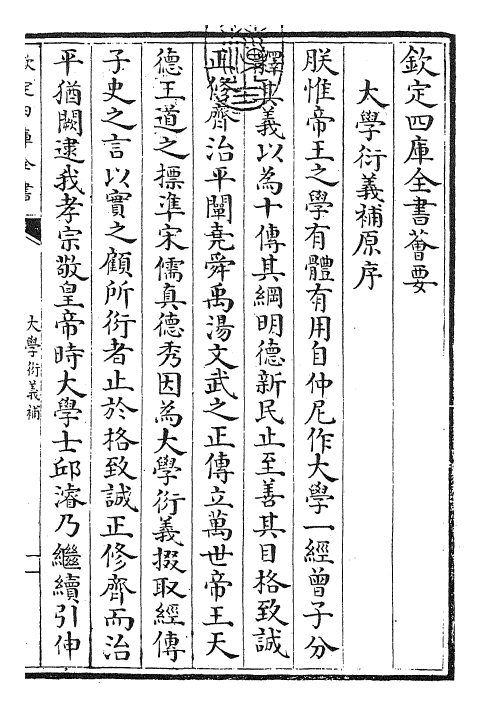 欽定四庫全書薈要
大學衍義補原序
朕惟帝王之學有體有用自仲尼作大學一經曾子分
釋其義以為十傳其綱明德新民止至善其目格致誠
正修齊治平闡堯舜禹湯文武之正傳立萬世帝王天
德王道之標準宋儒真德秀因為大學衍義掇取經傳
子史之言以實之顧所衍者止於格致誠正修齊而治
平猶闕逮我孝宗敬皇帝時大學士邱濬乃繼續引伸
欽定四庫全書
大學衍義補
一